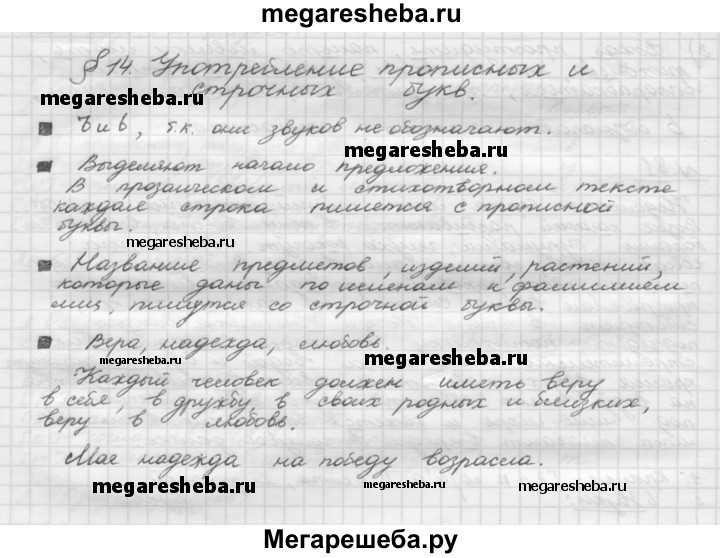 megaresheba.ru
§ 14. Употребление прописных и
строчных букв.
megaresheba.ru
Ъ и Ь, т.к. они звуков не обозначают.
megaresheba.ru
Выделяют начало предложения.
В прозаическом и стихотворном тексте
каждая строка пишется с прописной
буквы.
megaresheba.ru
Название предметов, изделий, растений,
которые даны по именам и фамилиям
лиц, пишутся со строчной буквы.
Вера, надежда, любовь.
megaresheba.ru
megaresheba.ru
Каждый человек должен иметь веру
в себя, в дружбу, в своих родных и близких,
веру в любовь.
Моя надежда на победу возрасла.
megaresheba.ru
megaresheba.ru
Мегарешеба.ру